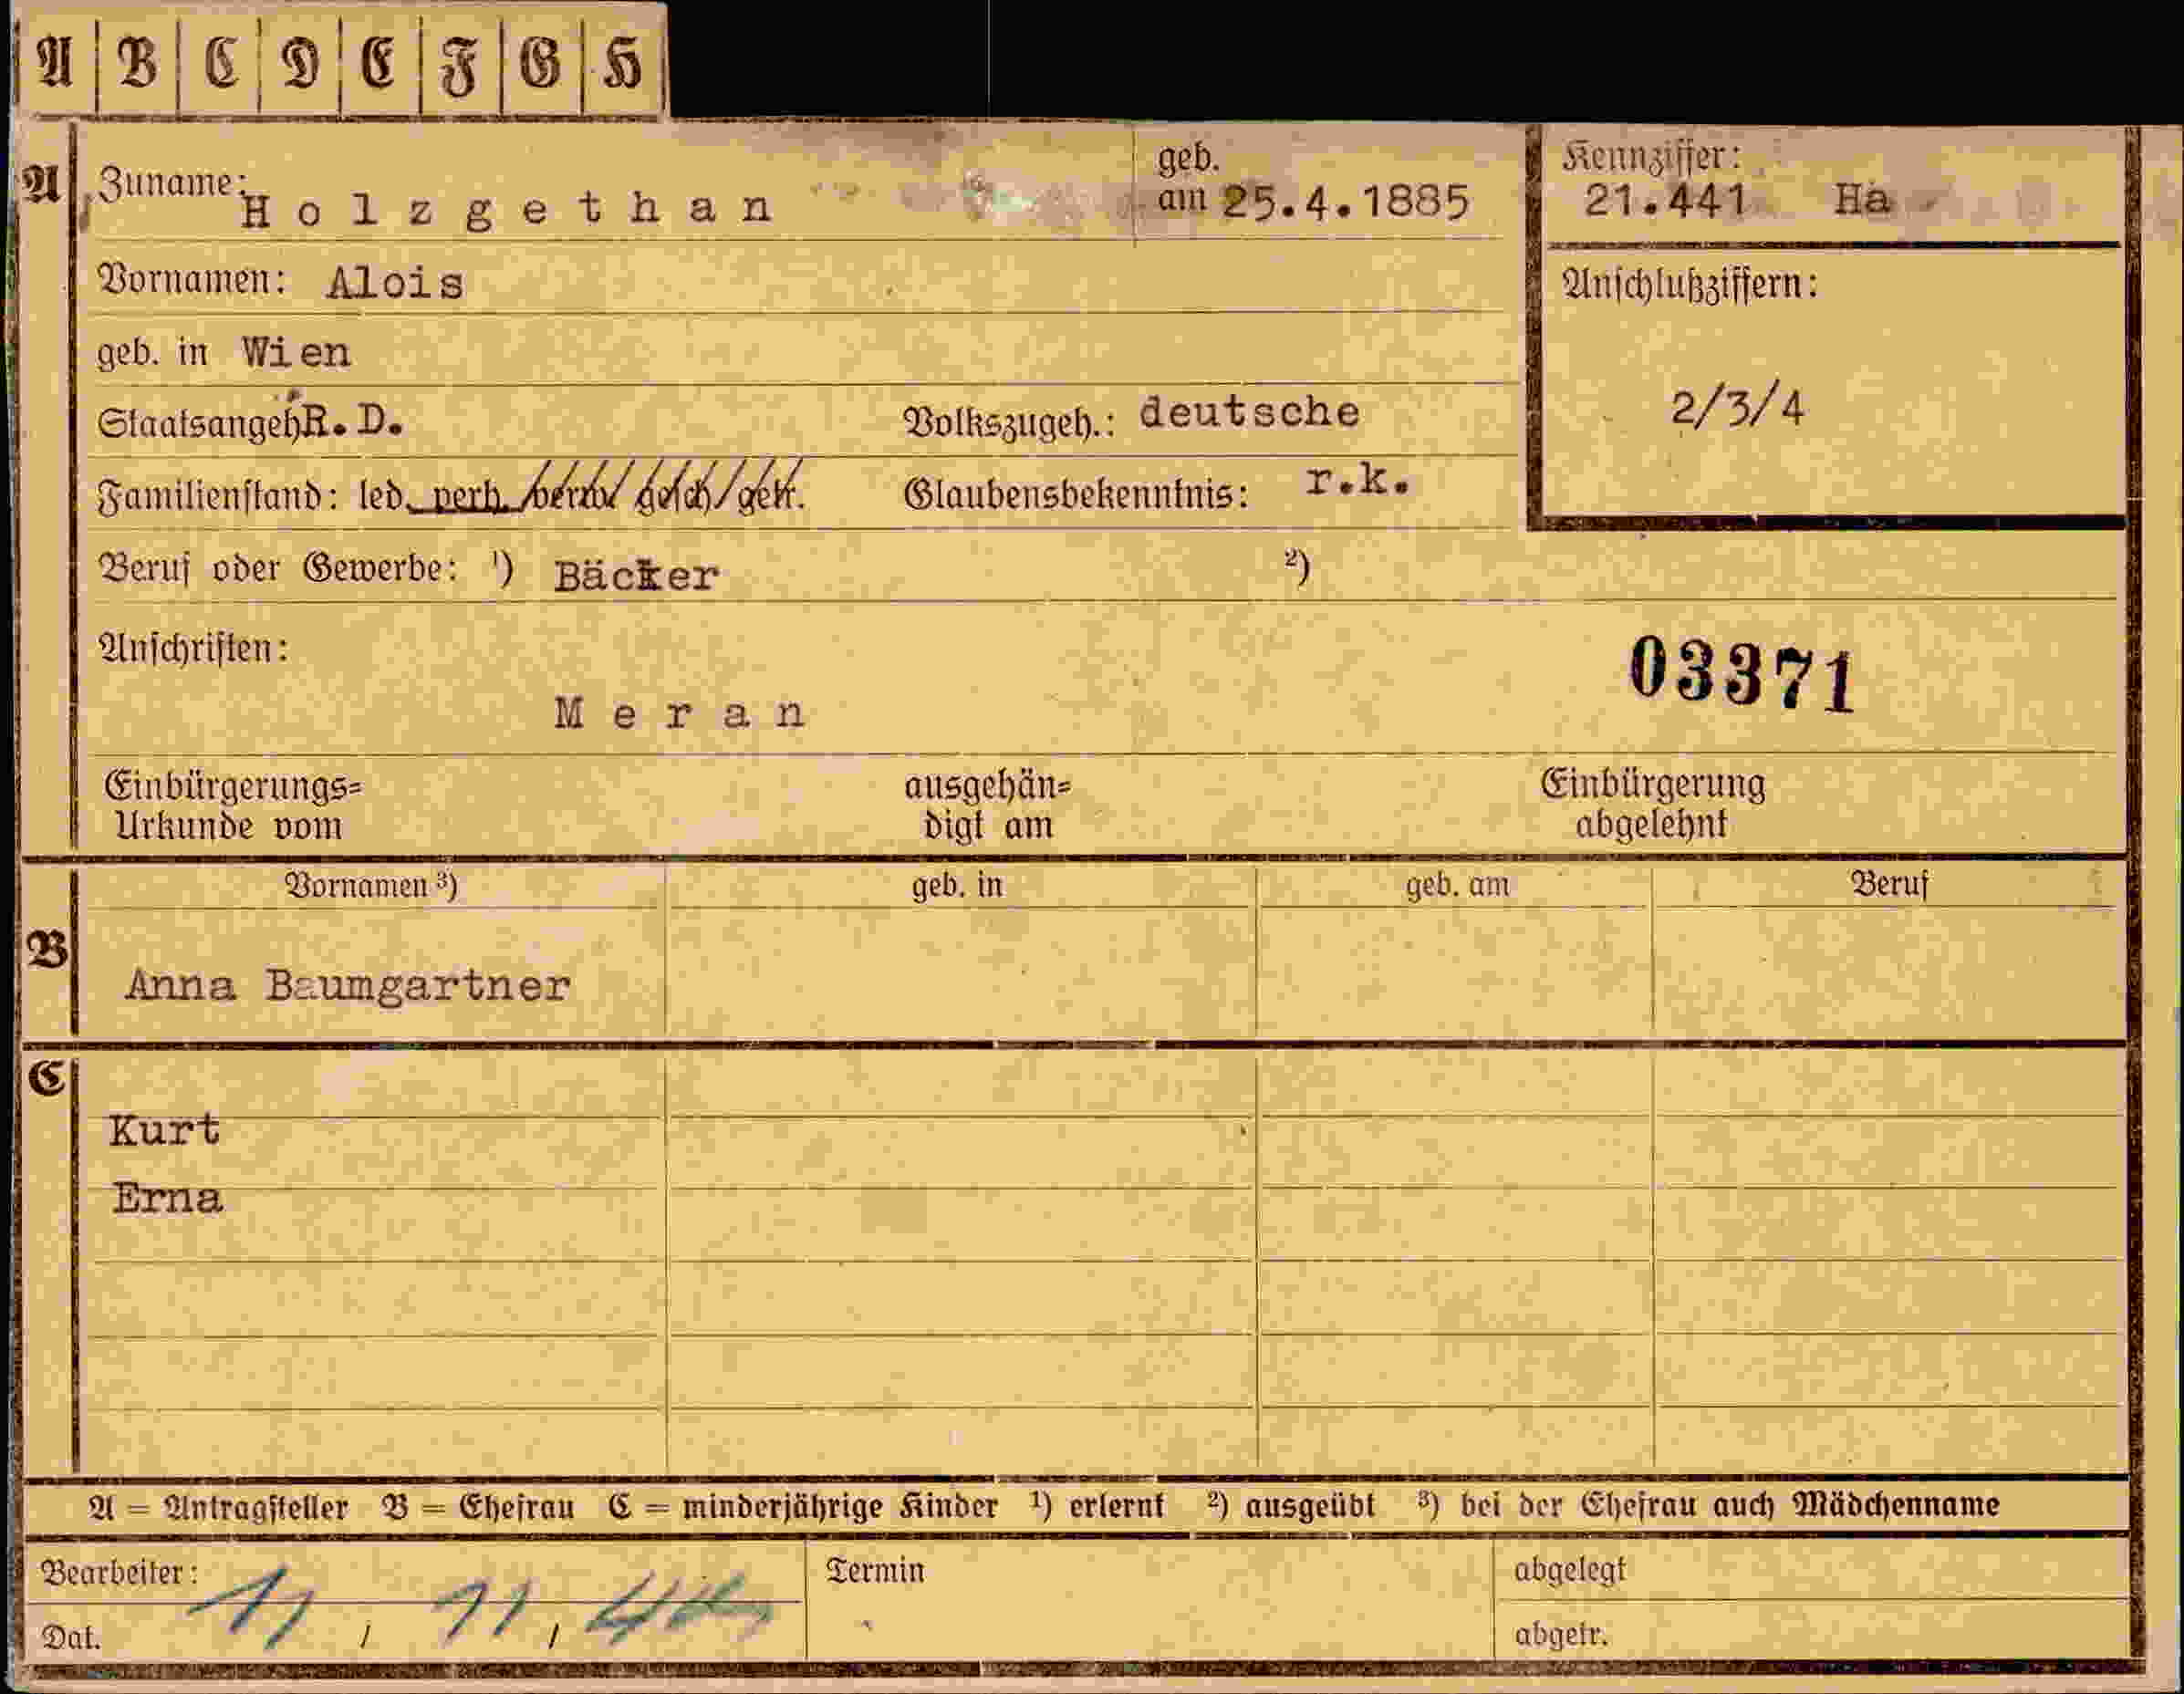 A B C D E F G H
A Zuname: Holzgethan geb. am 25.4.1885 Kennziffer: 21.441 Ha
Vornamen: Alois Anschlußziffern:
geb. in Wien
2/3/4
Staatsangeh R.D. Volkszugeh.: deutsche
Familienstand: led. verh. verw. gesch. getr. Glaubensbekenntnis: r.k.
Beruf oder Gewerbe: ¹) Bäcker ²)
Anschriften:
03371
Meran
Einbürgerungs= ausgehän= Einbürgerung
Urkunde vom digt am abgelehnt
Vornamen ³) geb. in geb. am Beruf
B
Anna Baumgartner
C
Kurt
Erna
A = Antragsteller B = Ehefrau C = minderjährige Kinder ¹) erlernt ²) ausgeübt ³) bei der Ehefrau auch Mädchenname
Bearbeiter: Termin abgelegt
Dat. abgetr.